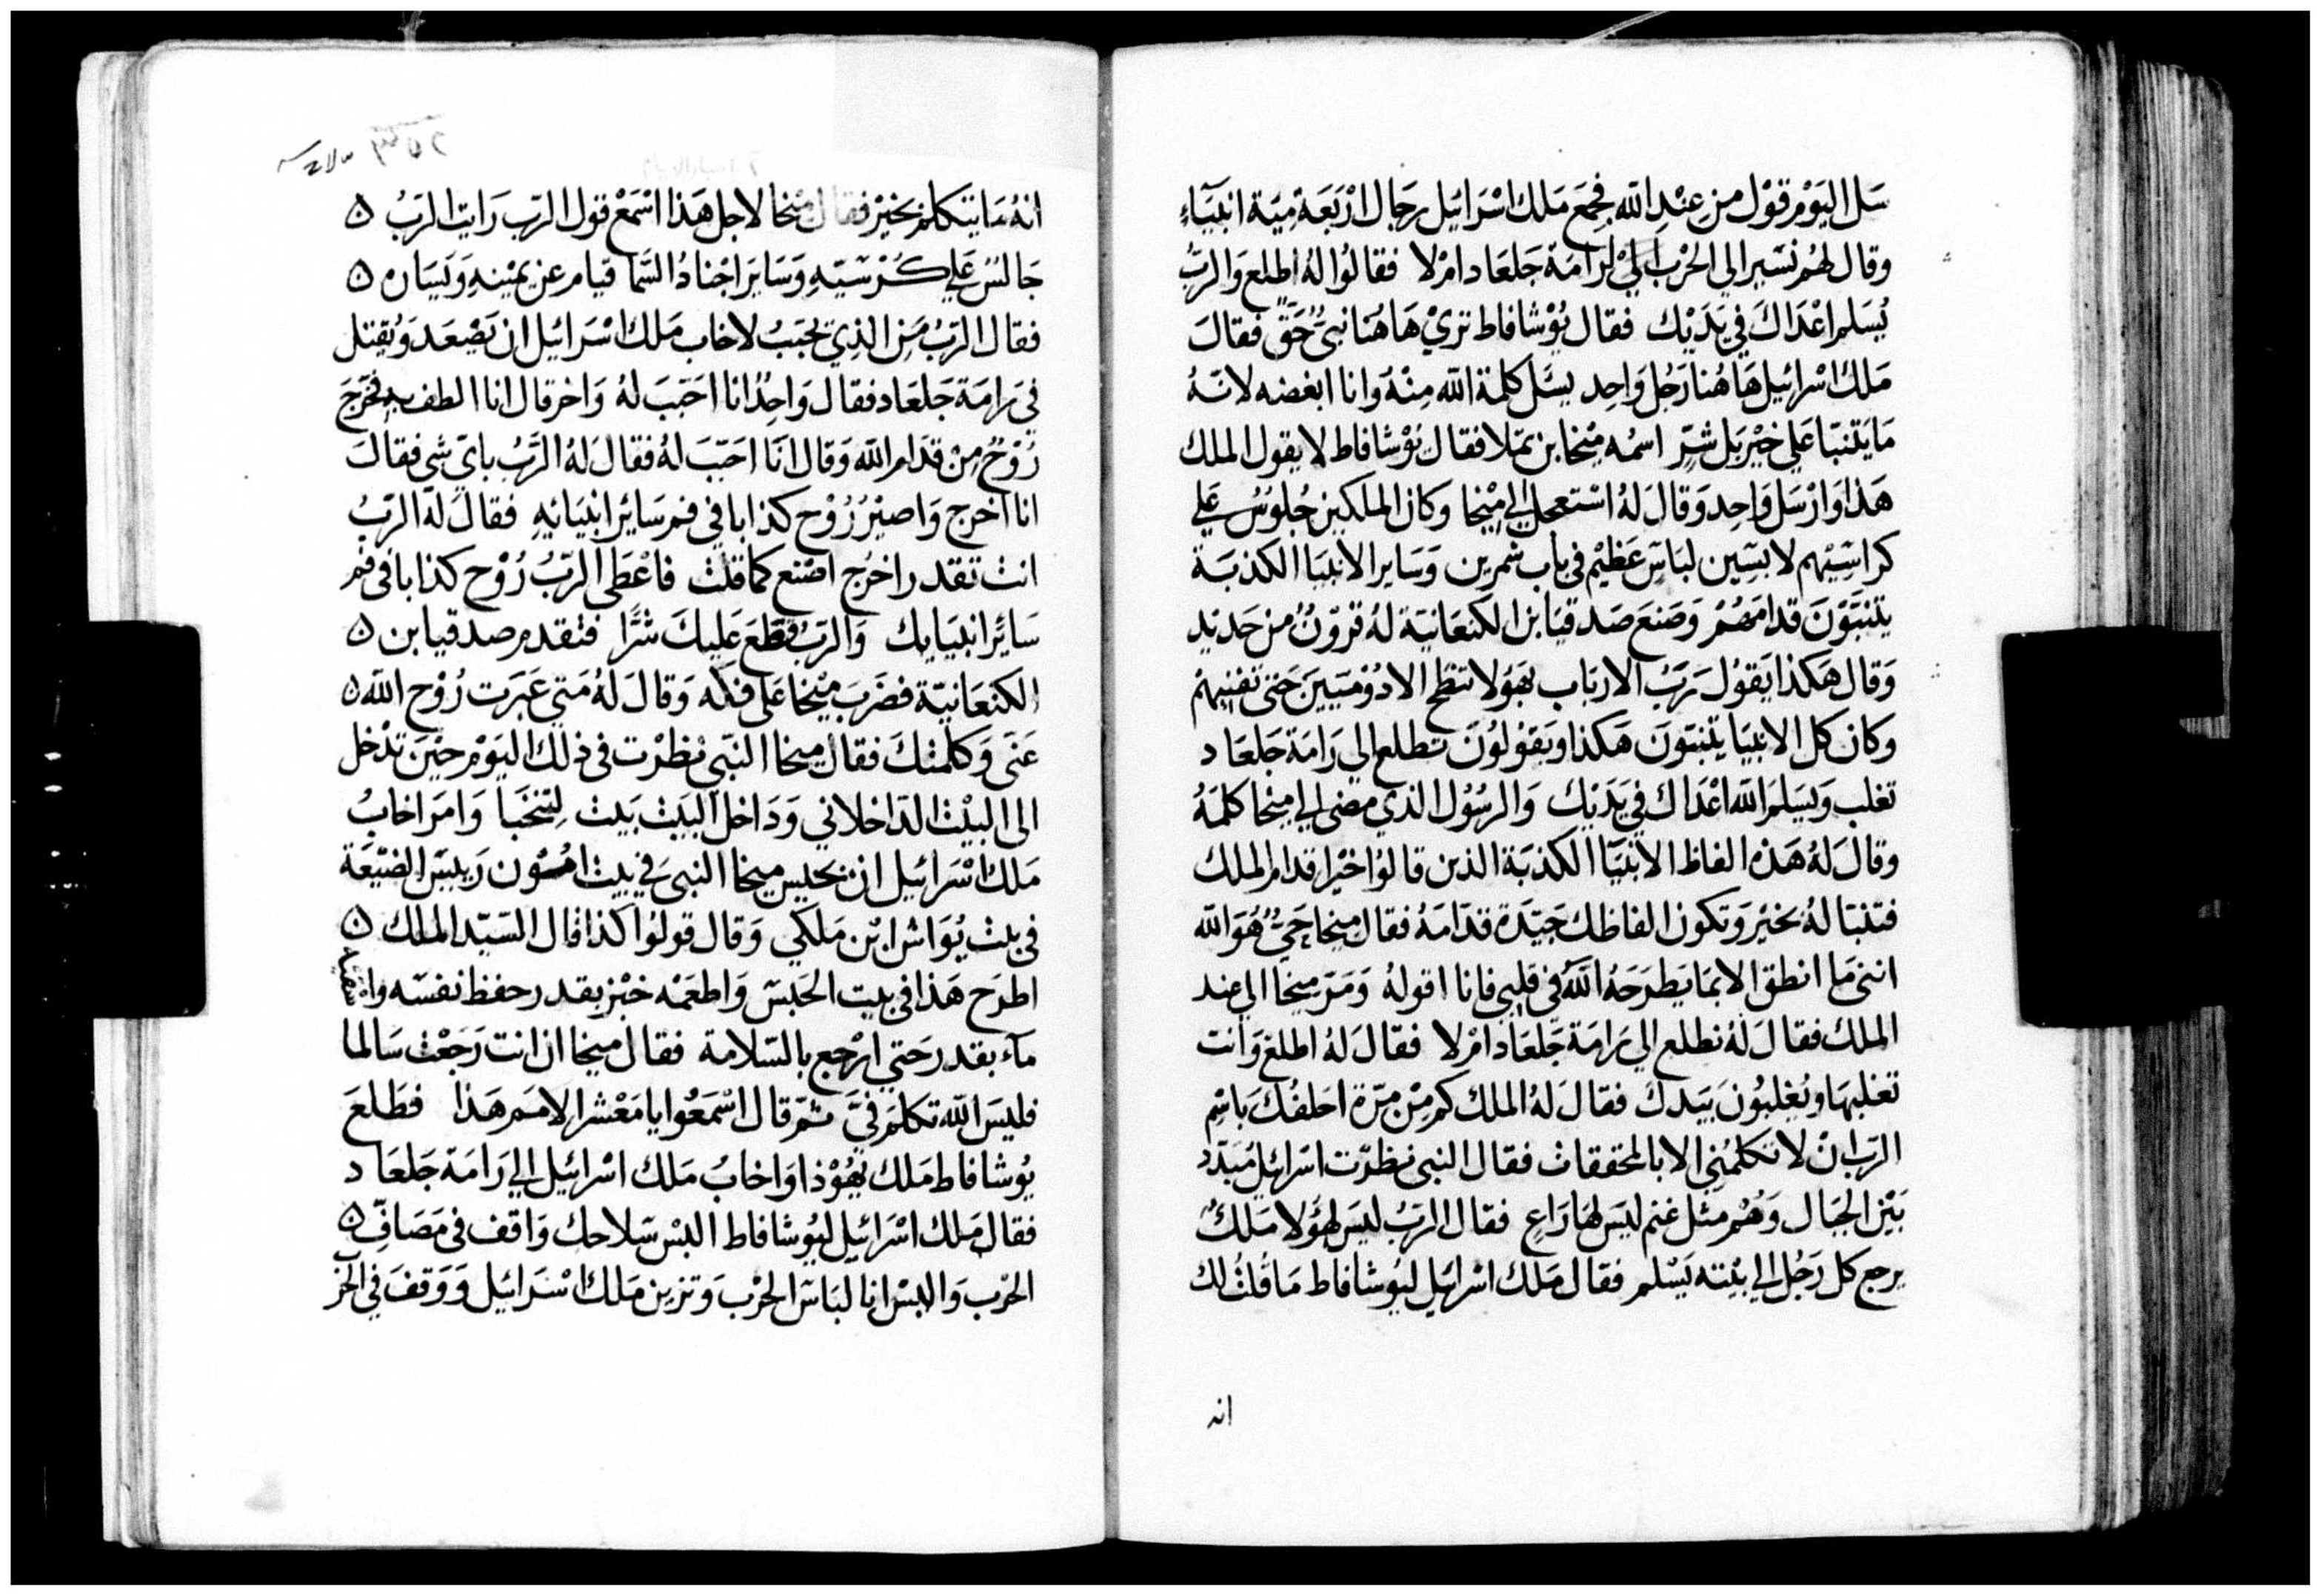 سَل اليَوْم قوْل من عِنْدِ الله فجمَع مَلك اسْرَائيل رجَال ارْبَعَة ميَة انبيَآءِ
وقال لهُم نسَير الي الحرْب الي رَامَة جَلعَاد امْ لا فقالوُا لهُ اطلع وَالربُّ
يُسَلم اعْدَاكَ في يَدَيْك فقال يُوْشافاط تريْ هَاهُنا نبيٌّ حَقٌّ فقالَ
مَلكُ اسْرائيل هَاهُنا رَجُل وَاحِد يسَل كلمة الله مِنْهُ وَانا ابغضه لانهُ
مَا يَتنبّا عَلي خيْر بَل شرٍّ اسمُه مِيْخا بن يمْلا فقال يُوْشافاط لا يقول الملك
هَذا وَارْسَل وَاحِد وَقالَ لهُ اسْتعجل الي مِيْخا وكان الملكين جُلوُسٌ عَلي
كراسِيْهم لابسَين لباسٍ عَظيْم في باب شمرين وَسَاير الانبيا الكذبَة
يتنبَّوْنَ قدامَهُمْ وَصَنعَ صَدقيَا بن الكنعَانيَة لهُ قرُوْنٌ من حَديد
وَقال هَكذا يَقوُل رَبُّ الارباب بهَوْلا تنطح الادُوْميَيينَ حَتى تفنيهمُ
وكان كل الانبيَا يتنبّونَ هَكذا ويَقوُلوُنَ تطلع الي رَامَة جَلعَاد
تغلب وَيسَلمَ الله اعْدَاك في يَدَيْك وَالرسُوُل الذي مضي الي ميخا كلمَهُ
وقالَ لهُ هَذه الفاظ الانبيَا الكذبَة الذين قالوُا خيْرا قدام الملك
فتنبّا لهُ بخيْر وَتكون الفاظك جيّدَة قدّامَهُ فقال ميخا حَيٌّ هُوَ الله
انني مَا انطق الا بمَا يَطرَحَهُ اللهُ في قلبي فانا اقولهُ وَمَرّ ميخا الي عند
الملك فقالَ لهُ نطلع الي رَامَة جَلعَاد امْ لا فقالَ لهُ اطلعْ وَانت
تغلبهَا ويُغلبُون بيَدكَ فقالَ لهُ الملك كم مِنْ مرّة احَلفُكَ باسْمِ
الرّب ان لا تكلمُني الا بالمحققات فقال النبي نظرْت اسْرائيل مُبدّد
بَيْن الجبَال وَهُم مثل غنم ليسَ لهَا رَاعٍ فقال الربُّ ليسَ لهؤلا مَلكٌ
يرجع كل رَجُل الي بيْته يَسْلم فقال مَلك اسْرائيل ليُوشافاط مَا قلتُ لك
انه
انهُ مَا يتكلم بخيْر فقال ميْخا لاجل هَذا اسْمَعْ قول الربّ رَايت الربُّ ه
جَالسٌ عَلي كُرْسَيّهِ وَسَاير اجْنادُ السَّما قيام عن يميْنهِ وَيسَاره ه
فقال الربُّ مَن الذِي يحبَبُ لاخاب مَلك اسْرَائيل ان يَصْعَد وَيُقتل
في رَامَة جَلعَاد فقال وَاحِدٌ انا احَبّبَ لهُ وَاخر قال انا الطف به فخرَجَ
رُوْحٌ مِنْ قدام الله وَقال انَا احَبّبَ لهُ فقالَ لهُ الرّبُّ باي شي فقالَ
انا اخرج وَاصيْرُ رُوْح كذابا في فم سَائر انبيَائهِ فقالَ لهُ الربُّ
انت تقدر اخرُج اصْنع كما قلت فاعْطي الربُّ رُوْح كذابا في فم
سَائر انبيَايك وَالربُّ قطعَ عَليكَ شرًّا فتقدم صدقيا بن ه
الكنعَانيّة فضرَبَ ميْخا عَلى فكه وَقالَ لهُ مَتي عَبَرَت رُوْح الله ه
عَني وَكلمتكَ فقال ميخا النبّي نظرْت في ذلك اليَوْم حيْنَ تدْخل
الى البيْت الدّاخلاني وَدَاخل البَيْت بَيت لتتخبَا وَامَر اخابُ
مَلك اسْرَائيل ان يحبس ميخا النبيَ في بيت امُوْن رَيسَ الضيْعَة
في بيت يُوَاش ابْن مَلكي وَقال قولوُا كذا قال السَيّد الملك ه
اطرَح هَذا في بيت الحَبسَ وَاطعمْه خبْز بقدر حفظ نفسَه واسْقيه
مآء بقدر حَتي ارْجع بالسّلامة فقال ميخا ان انت رَجَعْت سَالما
فليسَ الله تكلمَ فيَّ ثمّ قال اسْمَعُوا يا مَعْشر الامَم هَذا فطلعَ
يُوشافاط مَلك يَهُوْذا وَاخابُ مَلك اسْرائيل الي رَامَة جَلعَاد
فقال مَلك اسْرَائيل ليُوشافاط البسْ سَلاحك وَاقف في مَصَافِّ ه
الحرْب وَالبسْ انا لبَاسَ الحرْب وَتزين مَلك اسْرَائيل وَوَقفَ في الحر